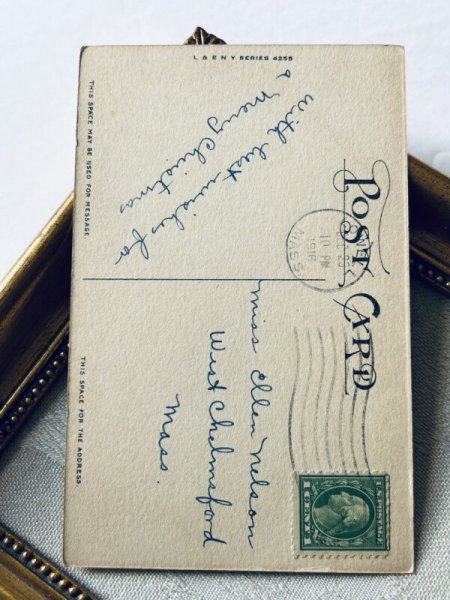 L & E N Y SERIES 4255
POST CARD
THIS SPACE MAY BE USED FOR MESSAGE
THIS SPACE FOR THE ADDRESS
With best wishes for
a Merry Christmas
10 PM
1916
MASS.
Miss Ellen Nelson
West Chelmsford
Mass.
U.S. POSTAGE
1 CENT 1